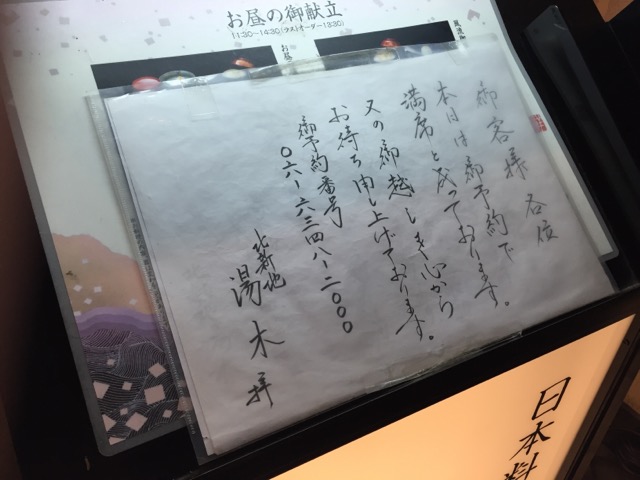 お昼の御献立
(11:30〜14:30(ラストオーダー13:30)
御客様 各位
本日は御予約で
満席と成っております。
又の御越しを心から
お待ち申し上げております。
御予約番号
〇六-六三四八-二〇〇〇
北新地
湯木 拝
日本料